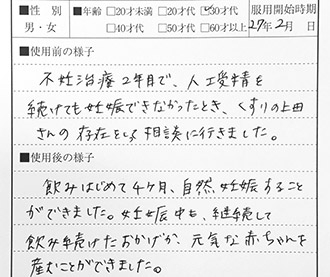 ■性別 ■年齢 □20才未満 □20才代 □30才代 服用開始時期
男・女 □40才代 □50才代 □60才以上 27年2月 日
■使用前の様子
不妊治療2年目で、人工受精を
続けても妊娠できなかったとき、くすりの上田
さんの存在をしり相談に行きました。
■使用後の様子
飲みはじめて4ヶ月、自然妊娠すること
ができました。妊娠中も、継続して
飲み続けたおかげか、元気な赤ちゃんを
産むことができました。